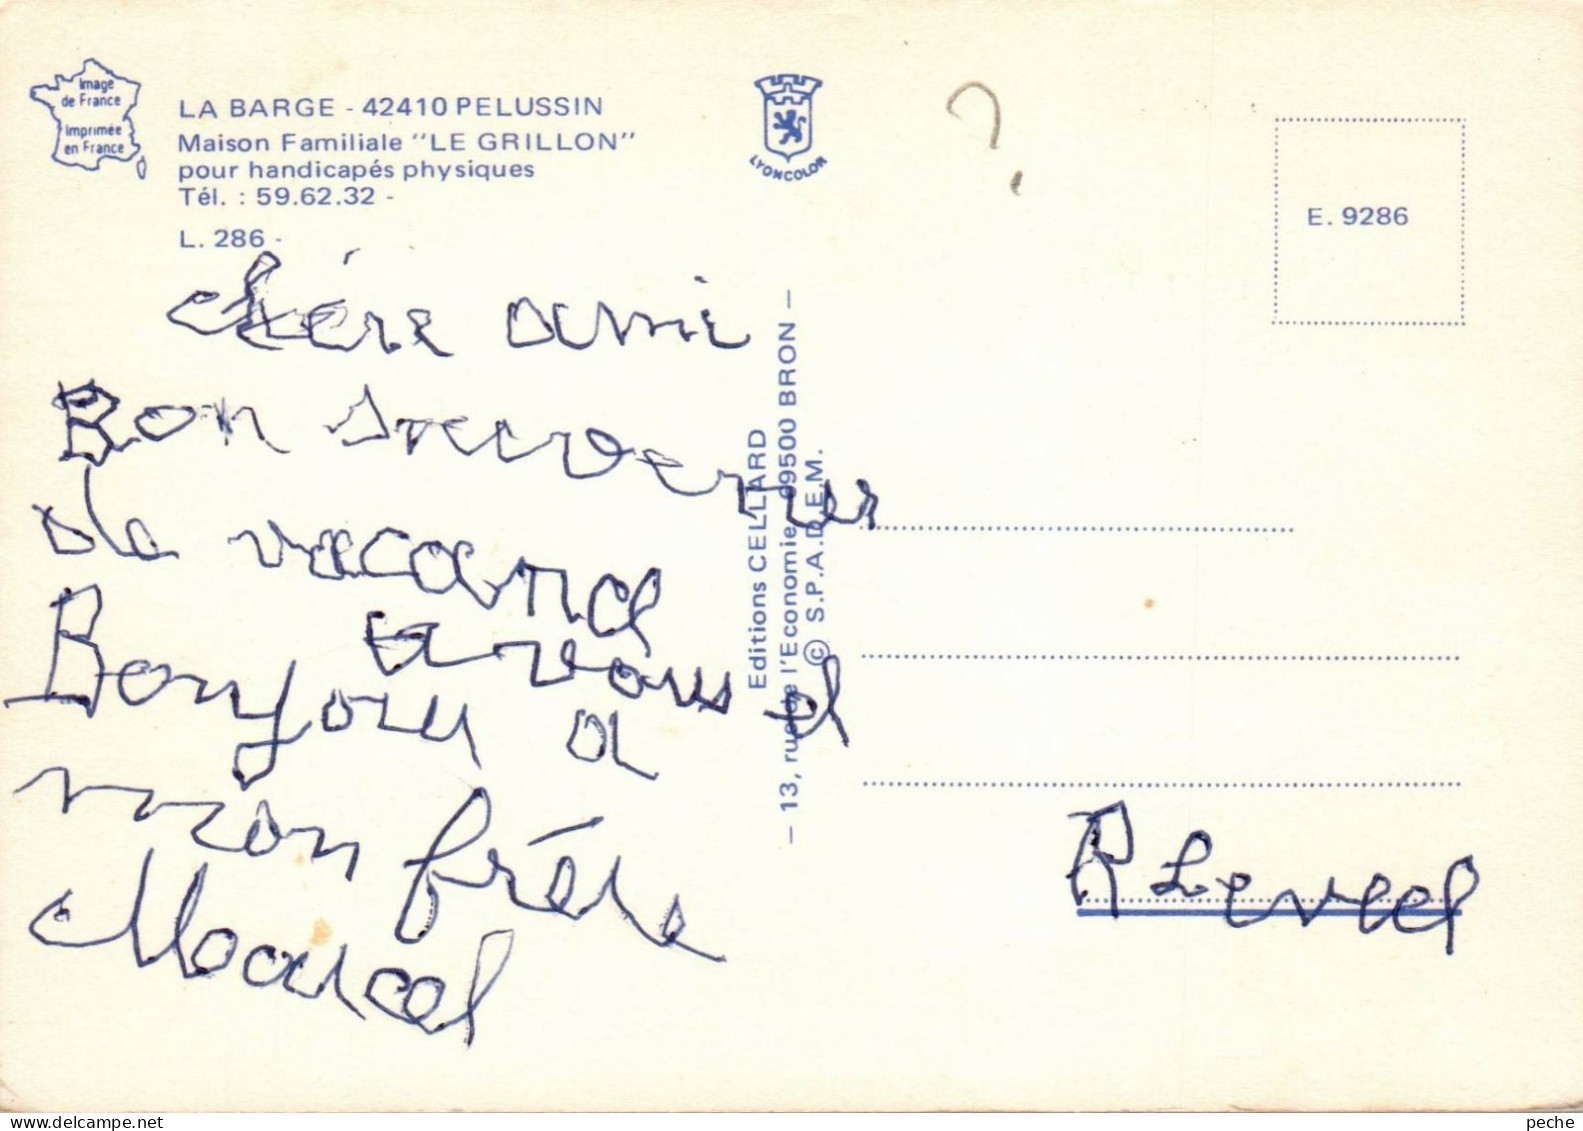 Image
de France
Imprimée
en France
LA BARGE - 42410 PELUSSIN
Maison Familiale "LE GRILLON"
pour handicapés physiques
Tél. : 59.62.32 -
L. 286 -
LYONCOLOR
?
E. 9286
chére ami
Bon
de vacance
a vous el
Bonjou a
mon frére
Marcel
Editions CELLARD
— 13, rue de l'Economie 69500 BRON —
© S.P.A.D.E.M.
R Leveel
www.delcampe.net
peche